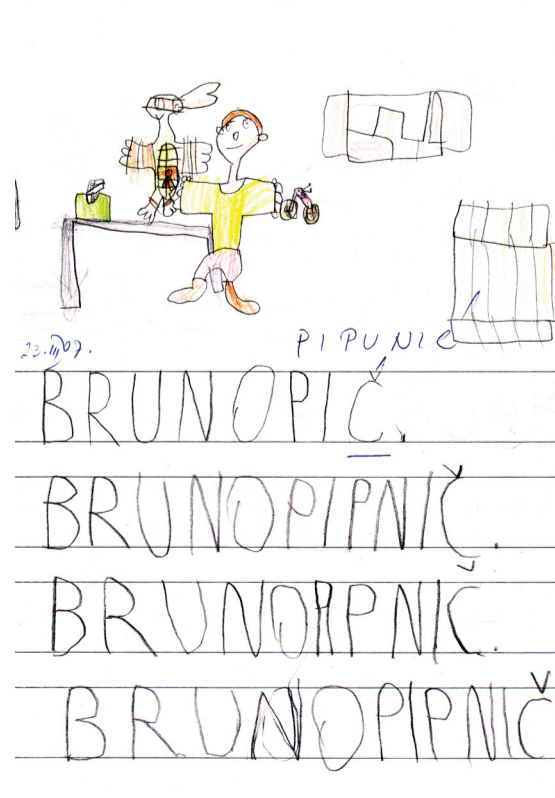 23.III 09.
PIPUNIĆ
BRUNOPIČ.
BRUNOPIPNIČ.
BRUNOPIPNIČ.
BRUNOPIPNIČ